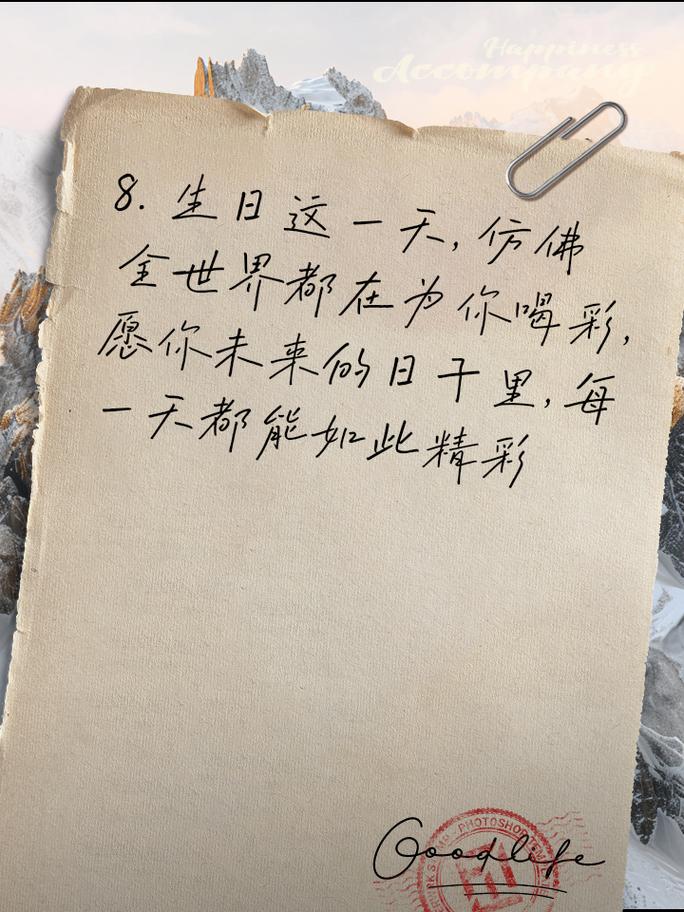 Happiness
Accompany
8. 生日这一天，仿佛
全世界都在为你喝彩，
愿你未来的日干里，每
一天都能如此精彩
Goodlife
PHOTOSHOP